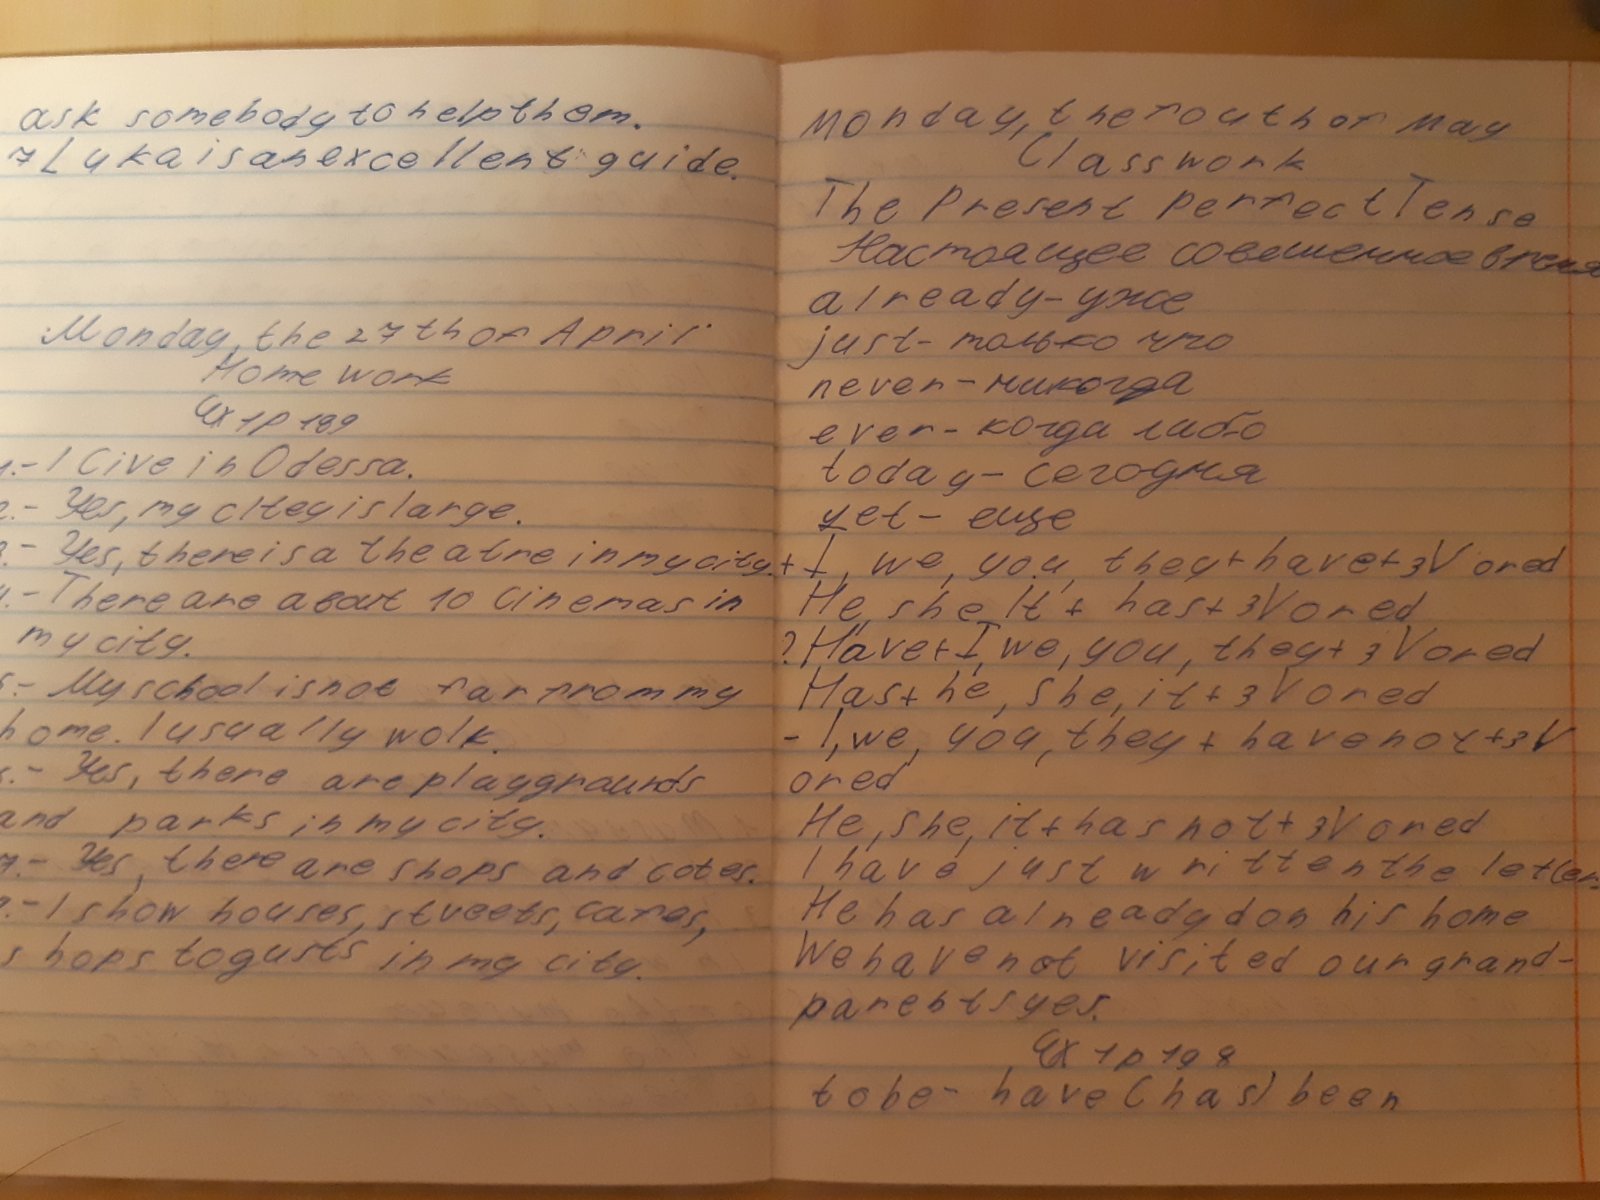 ask somebody to help them.
7 Luka is an excellent guide.
Monday, the 27th of April
Home work
Ex 1 p 189
1.- I live in Odessa.
2.- Yes, my citey is large.
3.- Yes, there is a theatre in my city.
4.- There are about 10 cinemas in
my city.
5.- My school is not far from my
home. I usually wolk.
6.- Yes, there are playgrounds
and parks in my city.
7.- Yes, there are shops and cofes.
I show houses, streets, cafes,
shops to gusts in my city.
Monday, the fouth of May
Classwork
The Present Perfect Tense
Настоящее совешенное время
already - уже
just - только что
never - никогда
ever - когда либо
today - сегодня
yet - еще
+ I, we, you, they + have + 3V or ed
He, she, It + has + 3V or ed
? Have + I, we, you, they + 3V or ed
Has + he, she, it + 3V or ed
- I, we, you, they + have not + 3V
or ed
He, she, it + has not + 3V or ed
I have just written the letter.
He has already don his home
We have not visited our grand-
parents yes.
Ex 1 p 198
to be - have (has) been